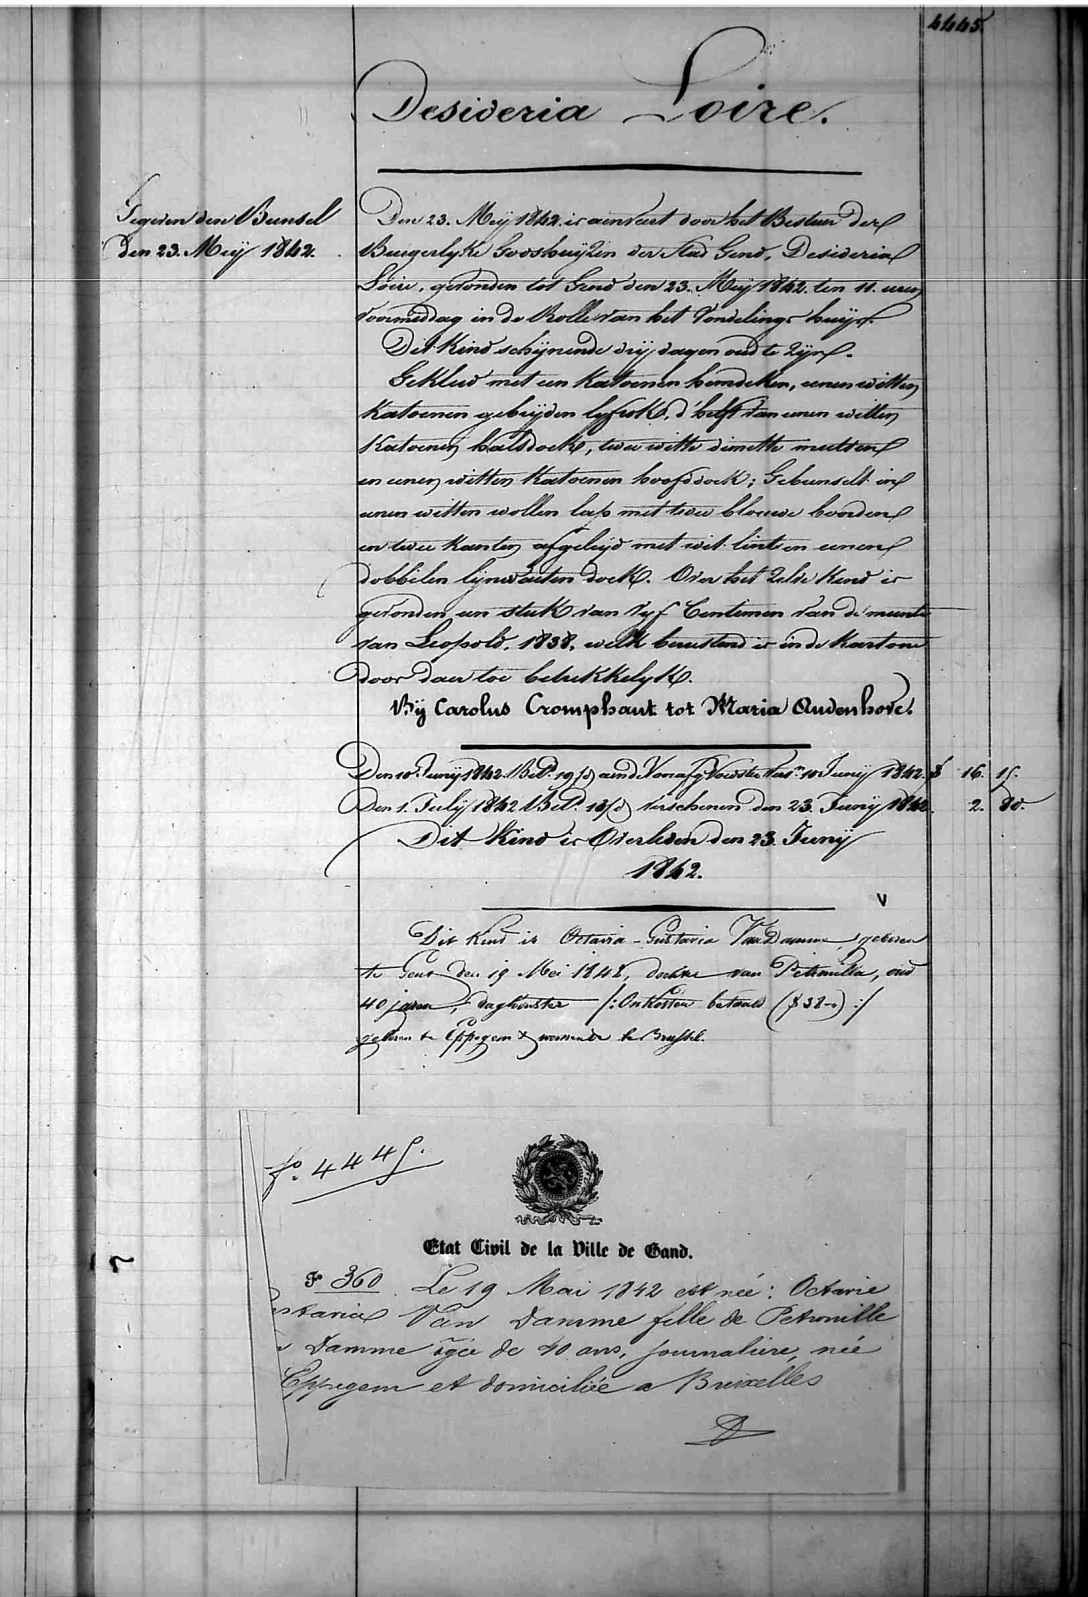 4445.
Desideria Loire.
Gegeven den Bunsel
den 23. Meij 1842.
Den 23. Meij 1842. is aenveert door het Bestuer der
Burgerlyke Godshuijzen der Stad Gend, Desideria
Loire, gevonden tot Gend den 23. Meij 1842. ten 11. uren
voormiddag in de Rolle van het Vondelings huijs.
Dit Kind schijnende drij dagen oud te zijn.
Gekleed met een Katoenen hemdeken, eenen witten
Katoenen gebreyden lyfrok, d'helft van eenen witten
Katoenen halsdoek, twee witte dimitte mutsen
en eenen witten Katoenen hoofddoek; Gebunselt in
eenen witten wollen lap met twee blouwe boorden
en twee Kanten afgeleyd met wit lint en eenen
dobbelen lijnwaeten doek. Over het zelve Kind is
gevonden een stuk van vyf Centimen van de munte
van Leopold, 1838, welk berustend is in de Kartone
door daer toe betrekkelyk.
Bij Carolus Cromphaut tot Maria Audenhove.
Den 10. Junij 1842. Bet. 19/ aende Voedster 10 Junij 1842. 16. 15.
Den 1. Julij 1842 Bet. 18/ verschenen den 23. Junij 1842. 2. 80.
Dit Kind is Overleden den 23 Junij
1842.
V
Dit kind is Octavia-Gustavia Van Damme, geboren
te Gent den 19 Mei 1842, dochter van Petronilla, oud
40 jaren, daghuurster /: Onkosten betaald (38-) :/
geboren te Eppegem & wonende te Brussel.
fo. 4445.
Etat Civil de la Ville de Gand.
F° 360. Le 19 Mai 1842 est née: Octavie
stavia Van Damme fille de Petronille
Damme âgée de 40 ans, journalière, née
Eppegem et domiciliée à Bruxelles